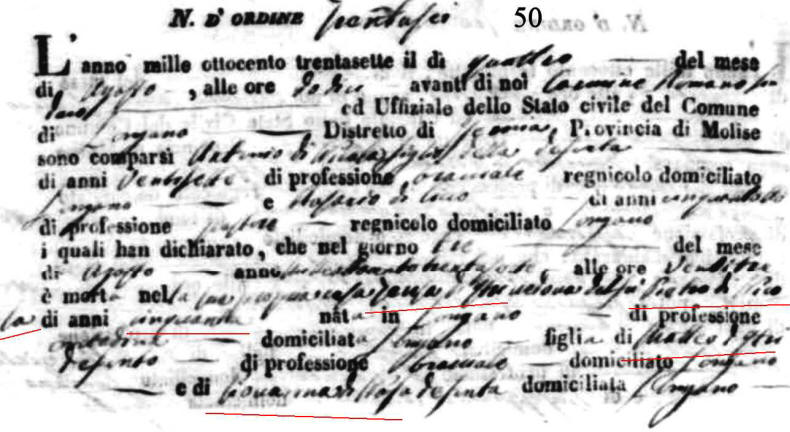 N. D' ORDINE trentasei 50
L' anno mille ottocento trentasette il dì quattro del mese
di Agosto, alle ore dodici avanti di noi Carmine Romano
ed Uffiziale dello Stato civile del Comune
di Longano Distretto di Isernia, Provincia di Molise
sono comparsi Antonio di figlio della defunta
di anni ventisette di professione bracciale regnicolo domiciliato
Longano e di anni cinquantotto
di professione pastore regnicolo domiciliato Longano
i quali han dichiarato, che nel giorno tre del mese
di Agosto anno alle ore ventitre
è morta nella sua propria casa
la di anni cinquanta nata in Longano di professione
contadina domiciliata Longano figlia di Matteo
defunto di professione bracciale domiciliato Longano
e di Giovanna di defunta domiciliata Longano